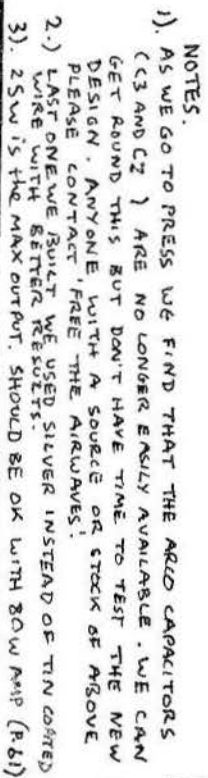 NOTES.
1). AS WE GO TO PRESS WE FIND THAT THE ARCO CAPACITORS
(C3 AND C2 ) ARE NO LONGER EASILY AVAILABLE. WE CAN
GET ROUND THIS BUT DON'T HAVE TIME TO TEST THE NEW
DESIGN. ANYONE WITH A SOURCE OR STOCK OF ABOVE
PLEASE CONTACT 'FREE THE AIRWAVES'.
2.) LAST ONE WE BUILT WE USED SILVER INSTEAD OF TIN COATED
WIRE WITH BETTER RESULTS.
3). 25W is the MAX OUTPUT. SHOULD BE OK WITH 80W AMP (P.61)